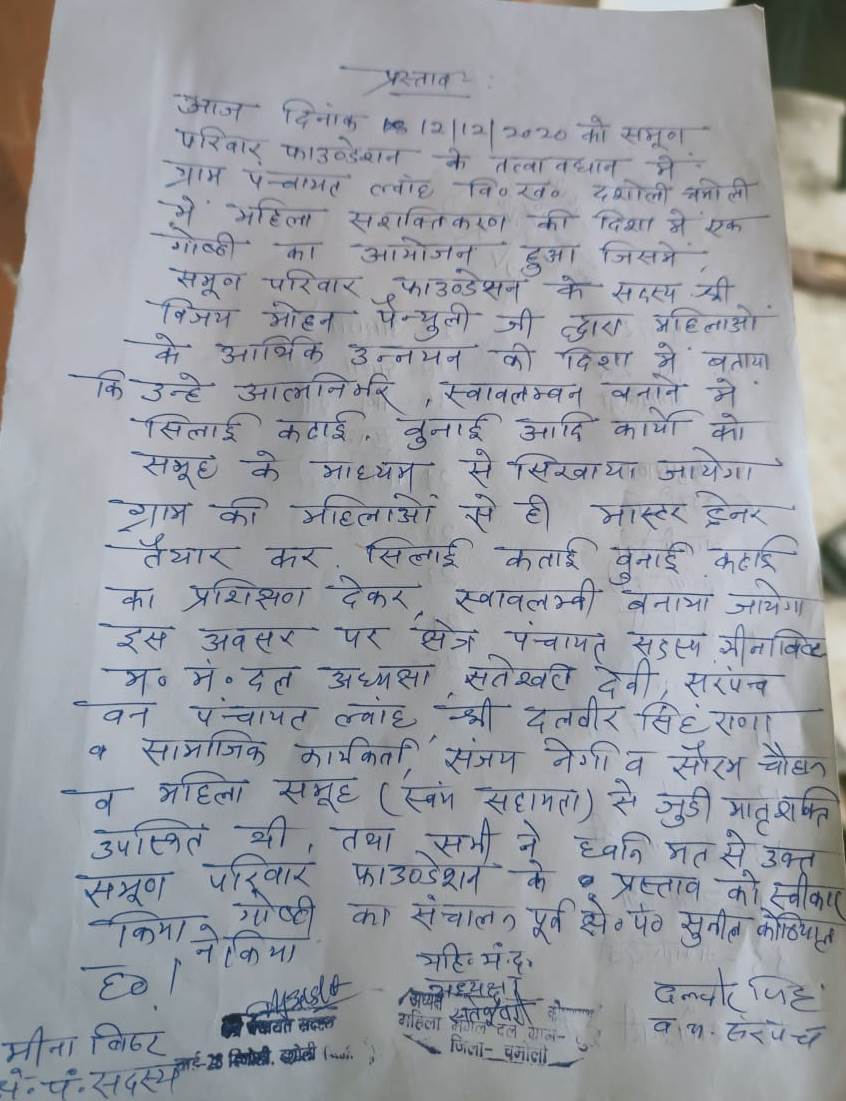 प्रस्ताव :
आज दिनांक 12/12/2020 को समूण
परिवार फाउण्डेशन के तत्वावधान में
ग्राम पंचायत ल्वांह वि०ख० दशोली चमोली
में महिला सशक्तिकरण की दिशा में एक
गोष्ठी का आयोजन हुआ जिसमें,
समूण परिवार फाउण्डेशन के सदस्य श्री
विजय मोहन पैन्युली जी द्वारा महिलाओं
के आर्थिक उन्नयन की दिशा में बताया
कि उन्हे आत्मनिर्भर, स्वावलम्वन वनाने में
सिलाई कटाई, वुनाई आदि कार्यो को
समूह के माध्यम से सिखाया जायेगा
ग्राम की महिलाओं से ही मास्टर ट्रेनर
तैयार कर सिलाई कताई वुनाई कटाई
का प्रशिक्षण देकर, स्वावलम्वी बनाया जायेगा
इस अवसर पर क्षेत्र पंचायत सदस्य
म० मं० दल अध्यक्षा सतेश्वरी देवी, सरपंच
वन पंचायत ल्वांह श्री दलवीर सिंह राणा
व सामाजिक कार्यकर्ता, संजय नेगी व सौरभ चौहान
व महिला समूह (स्वंय सहायता) से जुडी मातृशक्ति
उपस्थित थी, तथा सभी ने ध्वनि मत से उक्त
समूण परिवार फाउण्डेशन के प्रस्ताव को स्वीकार
किया गोष्ठी का संचालन पूर्व क्षे० पं० सुनील कोठियाल
ने किया
ह० |
महि. मं. द.
अध्यक्षा
दलवीर सिंह
व. पं. सरपंच
पंचायत सदस्य
महिला मंगल दल ग्राम-
जिला- चमोली
मीना बिष्ट
क्षे. पं. सदस्य